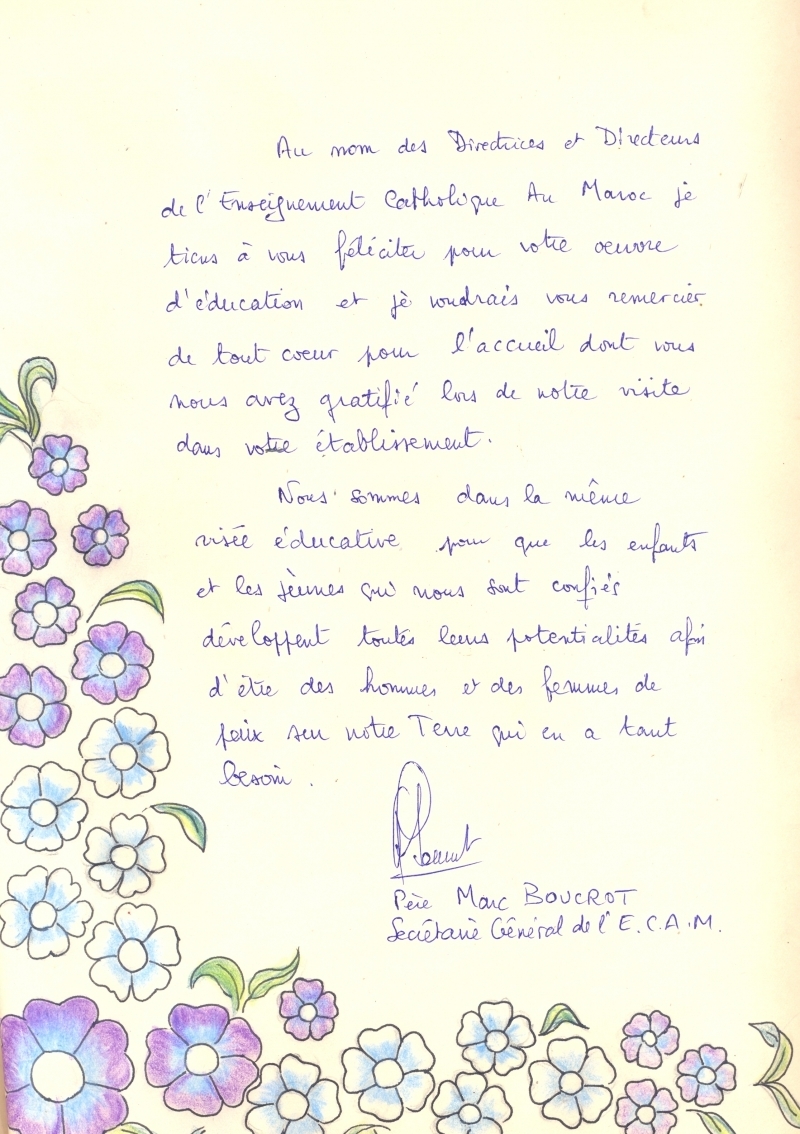 Au nom des Directrices et Directeurs
de l'Enseignement Catholique Au Maroc je
tiens à vous féliciter pour votre oeuvre
d'éducation et je voudrais vous remercier
de tout coeur pour l'accueil dont vous
nous avez gratifié lors de notre visite
dans votre établissement.
Nous sommes dans la même
visée éducative pour que les enfants
et les jeunes qui nous sont confiés
développent toutes leurs potentialités afin
d'être des hommes et des femmes de
paix sur notre Terre qui en a tant
besoin.
Père Marc BOUCROT
Secrétaire Général de l'E.C.A.M.